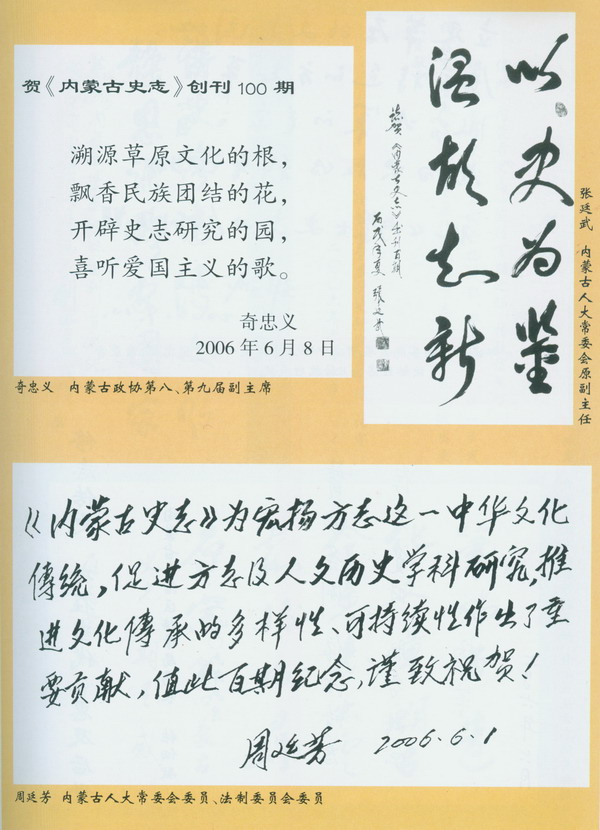 贺《内蒙古史志》创刊100期
溯源草原文化的根，
飘香民族团结的花，
开辟史志研究的园，
喜听爱国主义的歌。
奇忠义
2006年6月8日
奇忠义 内蒙古政协第八、第九届副主席
以史为鉴
温故知新
恭贺《内蒙古史志》创刊百期
丙戌年夏 张廷武
张廷武 内蒙古人大常委会原副主任
《内蒙古史志》为宏扬方志这一中华文化
傳統，促进方志及人文历史学科研究，推
进文化傳承的多样性、可持续性作出了重
要贡献，值此百期纪念，谨致祝贺！
周廷芳 2006.6.1
周廷芳 内蒙古人大常委会委员、法制委员会委员